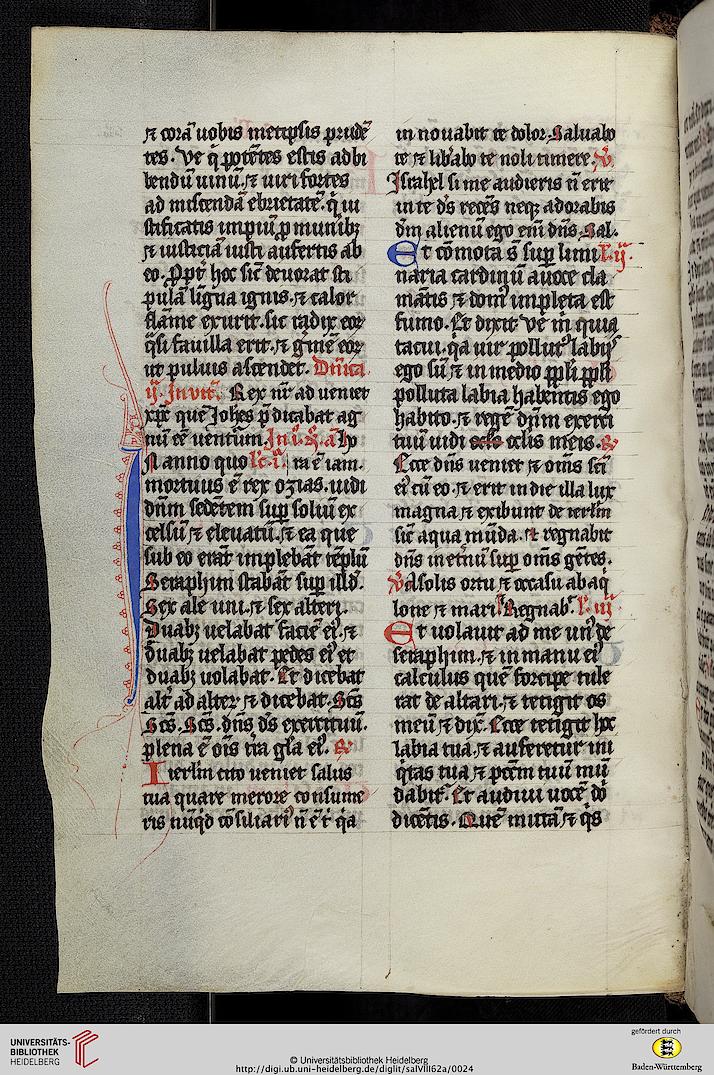 ⁊ corā uobis metipsis prudē
tes. Ve q̄ potētes estis ad bi
bendū uinū. ⁊ uiri fortes
ad miscendā ebrietatē. q̄ iu
stificatis impiū p̄ munibꝫ
⁊ iusticiā iusti aufertis ab
eo. Ppt̄ hoc sic̄ deuorat sti
pulā līgua ignis. ⁊ calor
flāme exurit. sic radix eoꝝ
q̄si fauilla erit. ⁊ gͥmē eoꝝ
ut puluis ascendet. Dn̄ica
ij. Inuit̄. Rex nr̄ ad ueniet
xp̄c quē Joh̄es p̄dicabat ag
nū eē uenturum. In
N anno quo Lc̄. i. ra ē iam.
mortuus ē rex ozias. uidi
dn̄m sedētem sup̄ soliū ex
celsū ⁊ eleuatū. ⁊ ea que
sub eo erāt implebāt tēplū
Seraphim stabāt sup̄ illd̄.
Sex ale uni. ⁊ sex alteri.
Duabꝫ uelabāt faciē ei᷒. ⁊
duabꝫ uelabāt pedes ei᷒ et
duabꝫ uolabāt. Et dicebāt
alt̄ ad alterꝝ ⁊ dicebāt. Sc̄s
Sc̄s. Sc̄s. dn̄s ds̄ exercituū.
plena ē oīs t̄ra gl̄a ei᷒. ℟
Ierl̄m cito ueniet salus
tua quare merore consume
ris nūqd̄ cōsiliari᷒ n̄ ē t̄ q̄a
in nouabit te dolor. Saluabo
te ⁊ lib̄abo te noli timere. ℣
Israhel si me audieris n̄ erit
in te ds̄ recēs neqꝫ adorabis
dm̄ alienū ego em̄ dn̄s. Sal.
Et cōmota s̄ sup̄ limi L. ij.
naria cardinū a uoce cla
mātis ⁊ dom᷒ impleta est
fumo. Et dixit Ve m̄ quia
tacui. q̄a uir pollut᷒ labijs
ego sū ⁊ in medio pp̄li pp̄li
polluta labia habentis ego
habito. ⁊ regē dn̄m exerci
tuū uidi oclis meis. ℟
Ecce dn̄s ueniet ⁊ om̄s sc̄i
ei᷒ cū eo. ⁊ erit in die illa lux
magna ⁊ exibunt de ierl̄m
sic̄ aqua mūda. ⁊ regnabit
dn̄s in et̄nū sup̄ om̄s gētes.
℣ A solis ortu ⁊ occasu ab aq̄
lone ⁊ mari. Regnab̄. L. iij.
Et uolauit ad me un᷒ de
seraphim. ⁊ in manu ei᷒
calculus quē forcipe tule
rat de altari. ⁊ tetigit os
meū ⁊ dix̄. Ecce tetigit hoc
labia tua. ⁊ auferetur ini
q̄tas tua ⁊ pcc̄m tuū mū
dabit᷑. Et audiui uocē dn̄
dicētis. Quē mittā ⁊ q̄s
UNIVERSITÄTS-
BIBLIOTHEK
HEIDELBERG
© Universitätsbibliothek Heidelberg
http://digi.ub.uni-heidelberg.de/diglit/salVIII62a/0024
gefördert durch
Baden-Württemberg